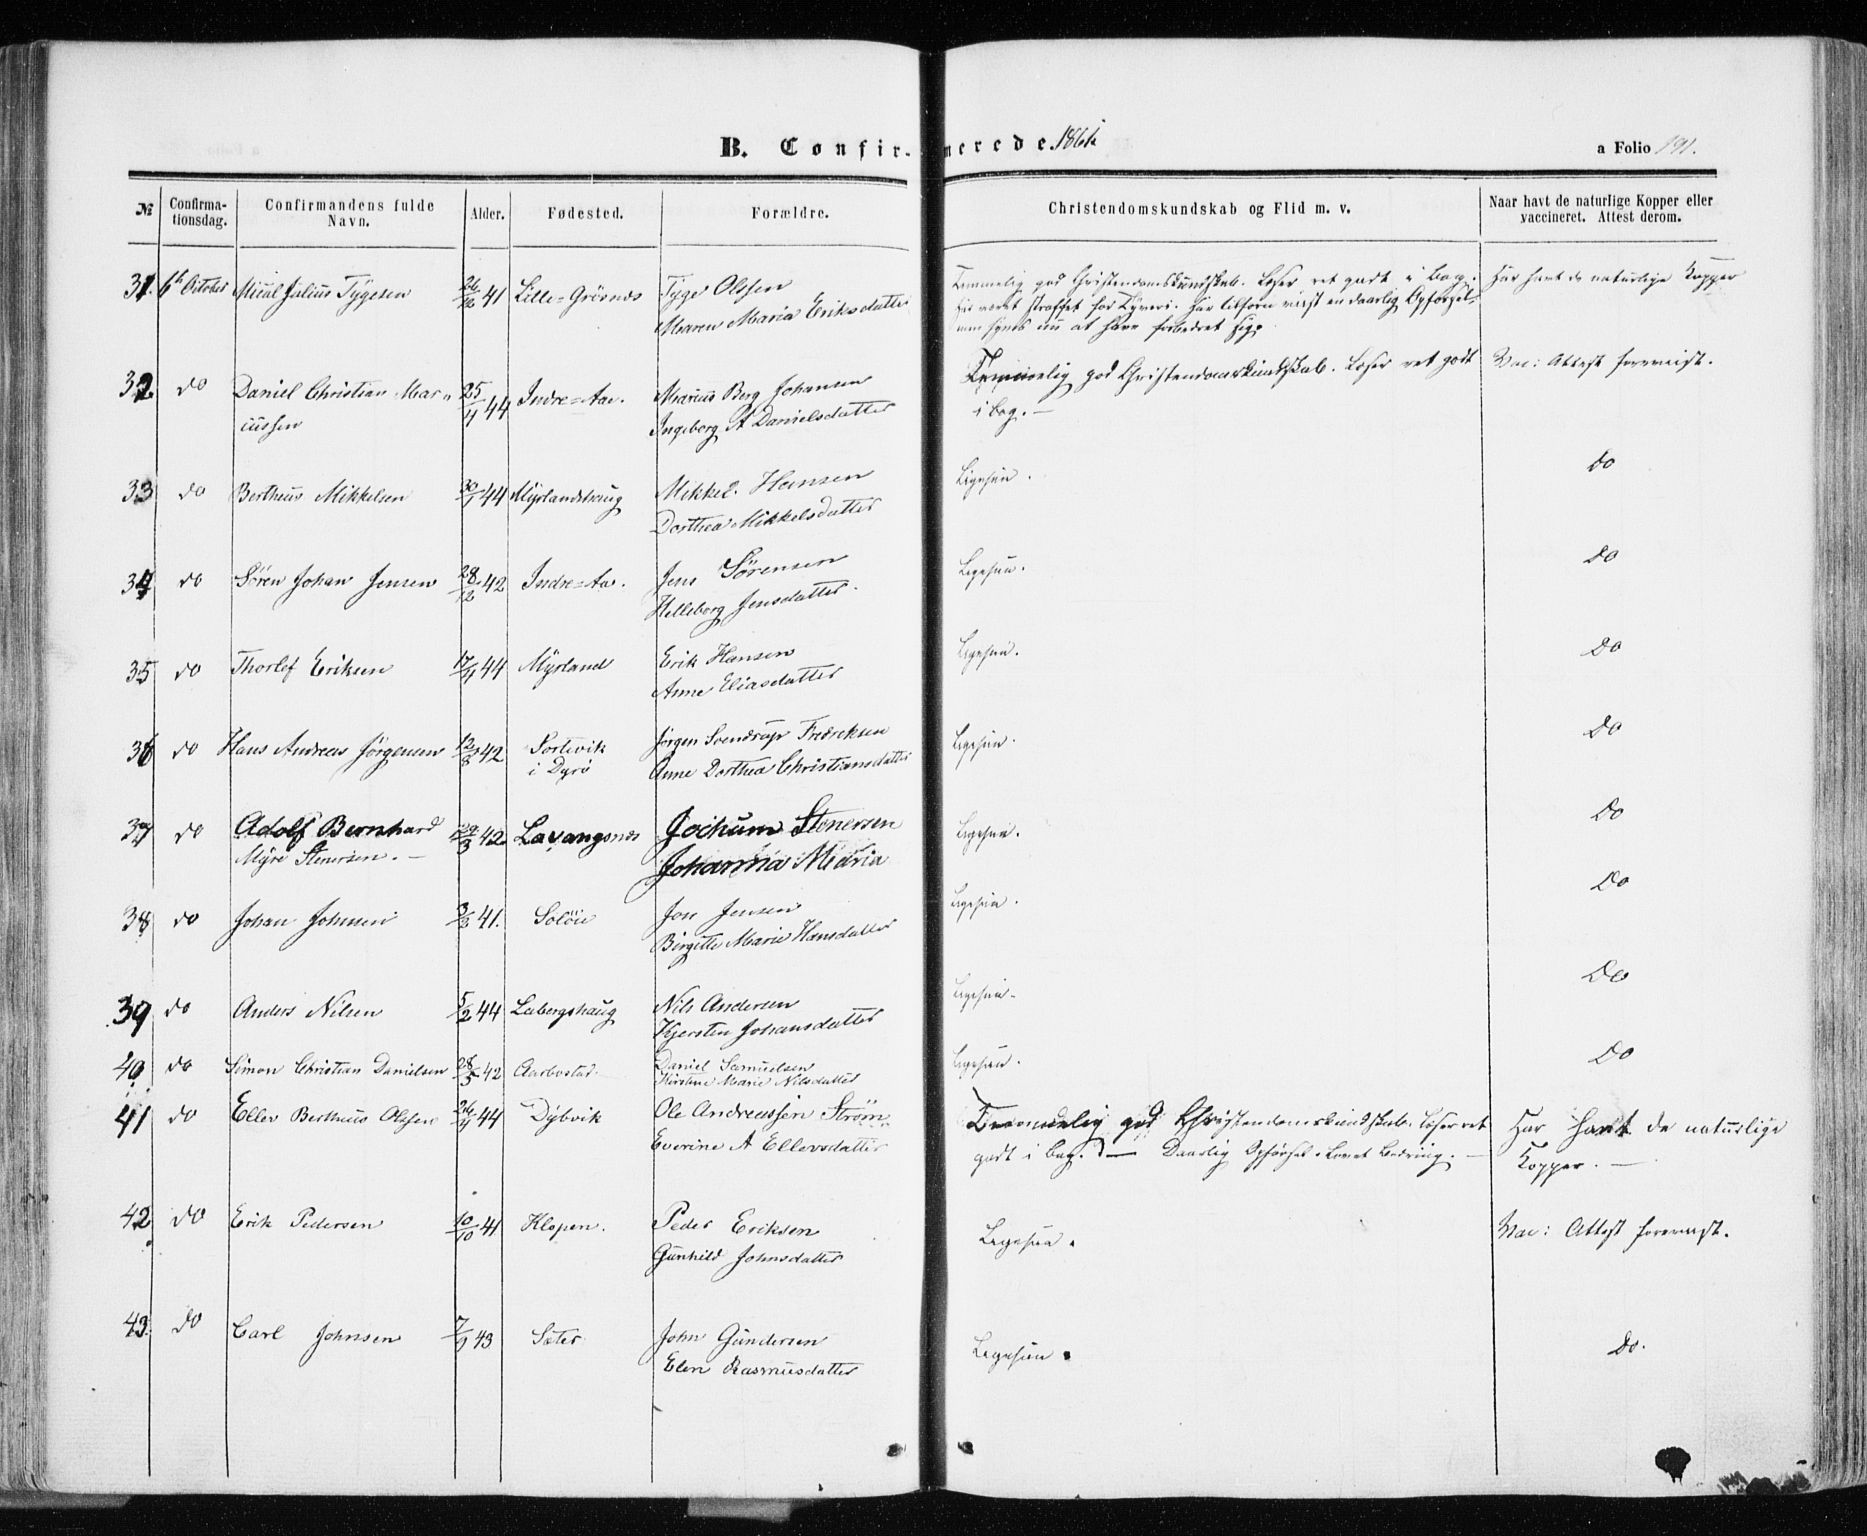 B. Confir-merede.
a Folio 191.
№ Confirma-tionsdag. Confirmandens fulde Navn. Alder. Fødested. Forældre. Christendomskundskab og Flid m. v. Naar havt de naturlige Kopper eller vaccineret. Attest derom.
31. 6te October Mical Julius Tygesen 41 Lille-Grøsnes Tyge Olsen Temmelig god Christendomskundskab. Læser ret godt i Bog. Har havt de naturlige Kopper
Maren Maria Eriksdatter Har været straffet for Tyveri. Har tilforn viist en daarlig Opførsel,
men synes nu at have forbedret sig.
32 do Daniel Christian Mar- 25/4 44 Indre-Aae. Marius Berg Johansen Temmelig god Christendomskundskab. Læser ret godt Vac: Attest foreviist.
iussen Ingeborg A Danielsdatter i Bog. —
33 do Bertheus Mikkelsen 30/1 44 Myrlandshaug Mikkel Hansen Ligesaa. do
Dorthea Mikkelsdatter
34 do Sören Johan Jensen 28/12 42 Indre-Aae. Jens Sörensen Ligesaa. do
Helleborg Jensdatter.
35 do Thorlef Eriksen 17/4 44 Myrland Erik Hansen Ligesaa. do
Anne Eliasdatter
36 do Hans Andreas Jörgensen 12/8 42 Sortevik Jörgen Svendrup Fredriksen Ligesaa. do
i Dyrö Anne Dorthea Christiansdatter
37 do Adolf Bernhard 29/3 42 Lavangsnes Jochum Stenersen Ligesaa. do
Myre Stenersen. — Johanna Maria
38 do Johan Johnsen 3/2 41. Solöie Jon Jensen Ligesaa. Do
Birgitte Marie Hansdatter
39 do Anders Nilsen 5/2 44 Labergshaug Nils Andersen Ligesaa. Do
Kjersten Johansdatter
40 do Simon Christian Danielsen 28/5 42 Aarbostad. Daniel Samuelsen Ligesaa. Do
Kirstine Marie Nilsdatter
41 do Ellev Bertheus Olssen 26/4 44 Dybvik Ole Andreassen Ström Temmelig god Christendomskundskab. Læser ret Har havt de naturlige
Everine A Ellevsdatter godt i Bog. — Daarlig Opførsel. Lovet Bedring. — Kopper. —
42 do Erik Pedersen 10/10 41 Klopen. Peder Eriksen Ligesaa. Vac: Attest foreviist.
Gunhild Johnsdatter
43. do Carl Johnsen 7/9 43 Sæter John Gundersen Ligesaa. Do.
Elen Rasmusdatter